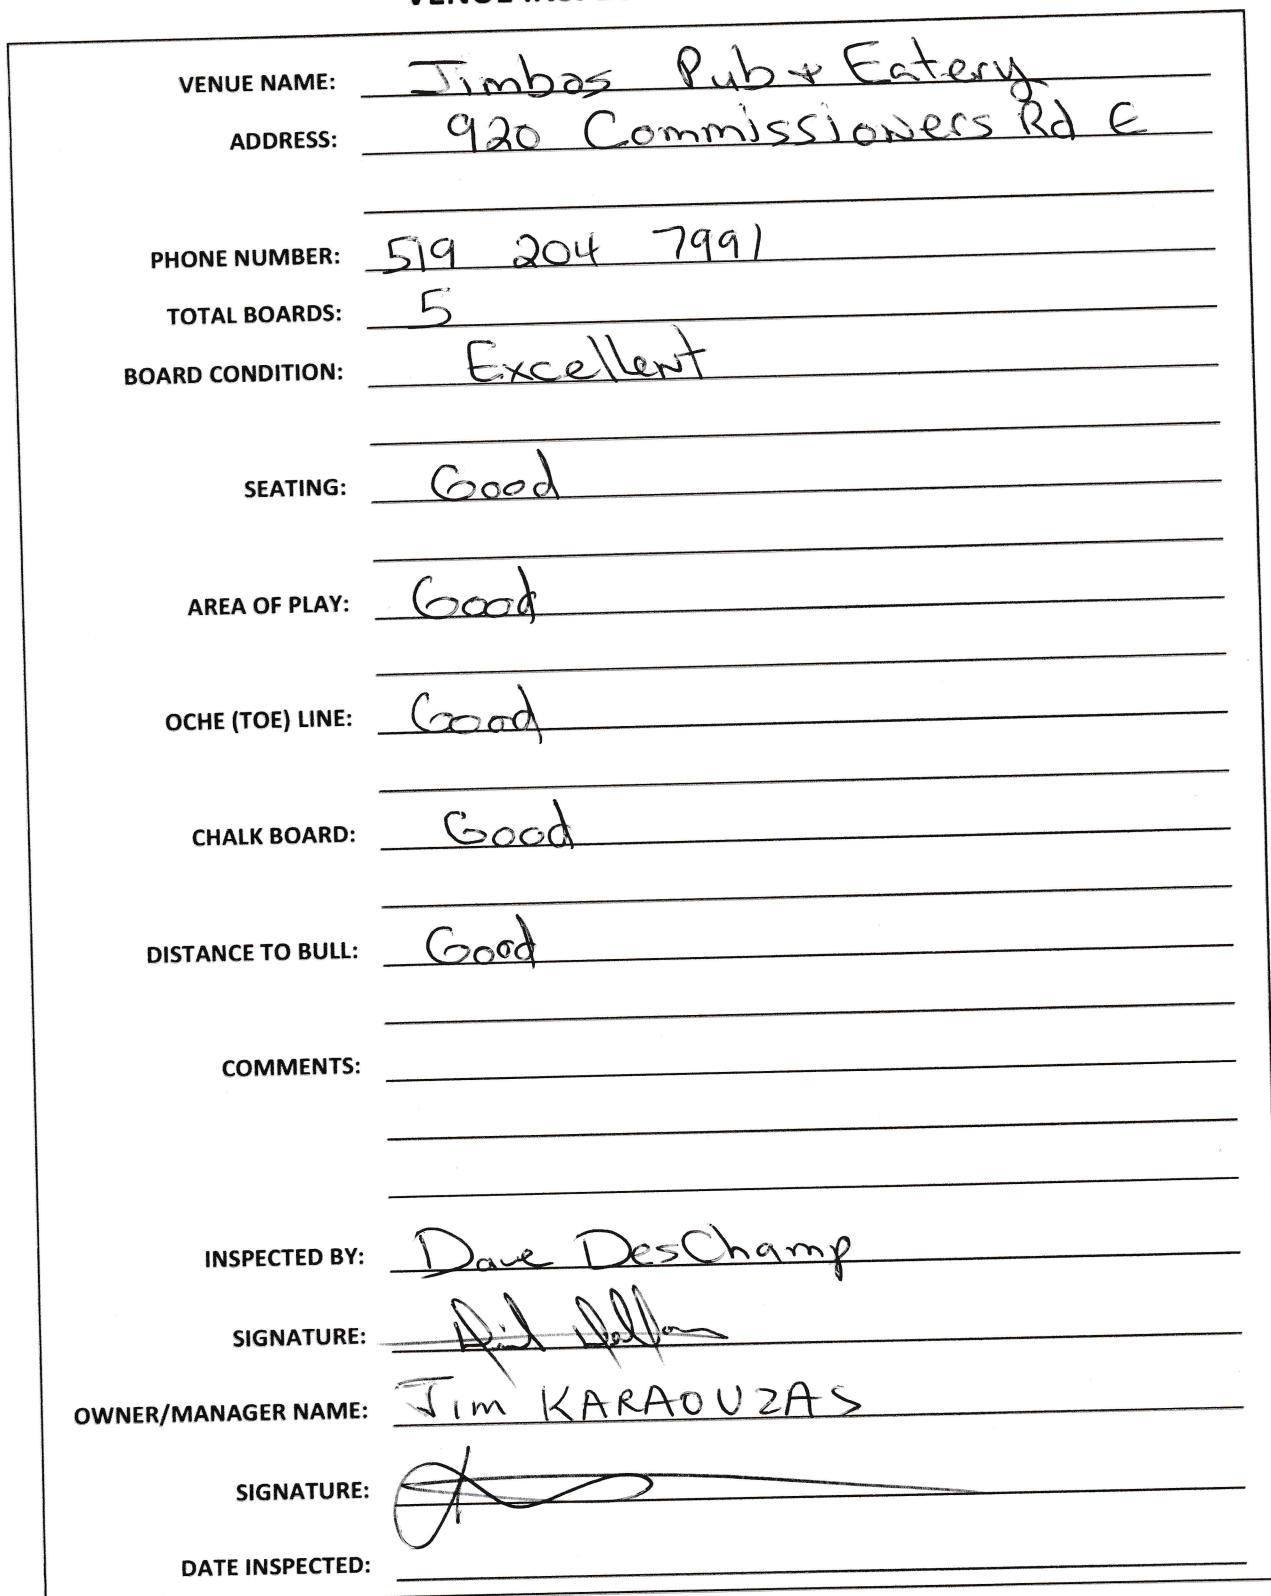 VENUE NAME: Jimbos Pub + Eatery
ADDRESS: 920 Commissioners Rd E
PHONE NUMBER: 519 204 7991
TOTAL BOARDS: 5
BOARD CONDITION: Excellent
SEATING: Good
AREA OF PLAY: Good
OCHE (TOE) LINE: Good
CHALK BOARD: Good
DISTANCE TO BULL: Good
COMMENTS:
INSPECTED BY: Dave DesChamp
SIGNATURE:
OWNER/MANAGER NAME: Jim KARAOUZAS
SIGNATURE:
DATE INSPECTED: